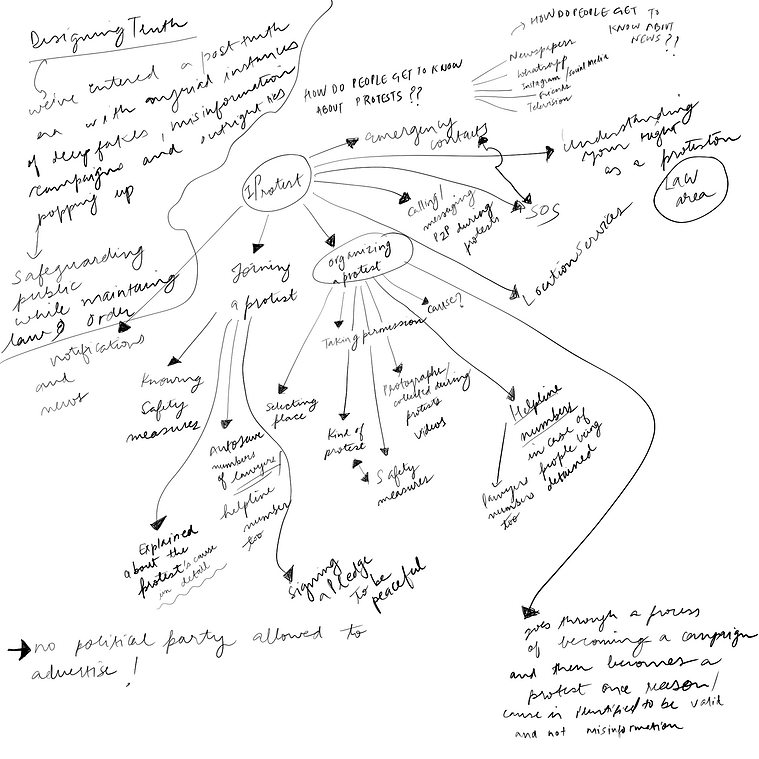 Designing Truth
we've entered a post truth
era with ongoing instances
of deep fakes, misinformation
campaigns and outright lies
popping up
Safeguarding
public
while maintaing
law & order
HOW DO PEOPLE GET TO KNOW
ABOUT PROTESTS ??
HOW DO PEOPLE GET TO
KNOW ABOUT
NEWS ??
Newspapers
Whatsapp
Instagram/social media
Friends
Television
IProtest
emergency
contacts
Understanding
your right
as a protestor
Law
area
Calling/
messaging
P2P during
protests
SOS
Location services
notifications
and
news
Joining
a protest
organizing
a protest
Knowing
Safety
measures
Autosave
numbers
of lawyers/
helpline
number
too
Explained
about the
protest's cause
in detail
Signing
a Pledge
to be
peaceful
Selecting
place
Taking permission
cause?
Kind of
protest
Safety
measures
Photographs/
collected during
protests
videos
Helpline
numbers
in case of
people being
detained
lawyers
number
too
goes through a process
of becoming a campaign
and then becomes a
protest once reason/
cause is identified to be valid
and not misinformation
no political party allowed to
advertise!